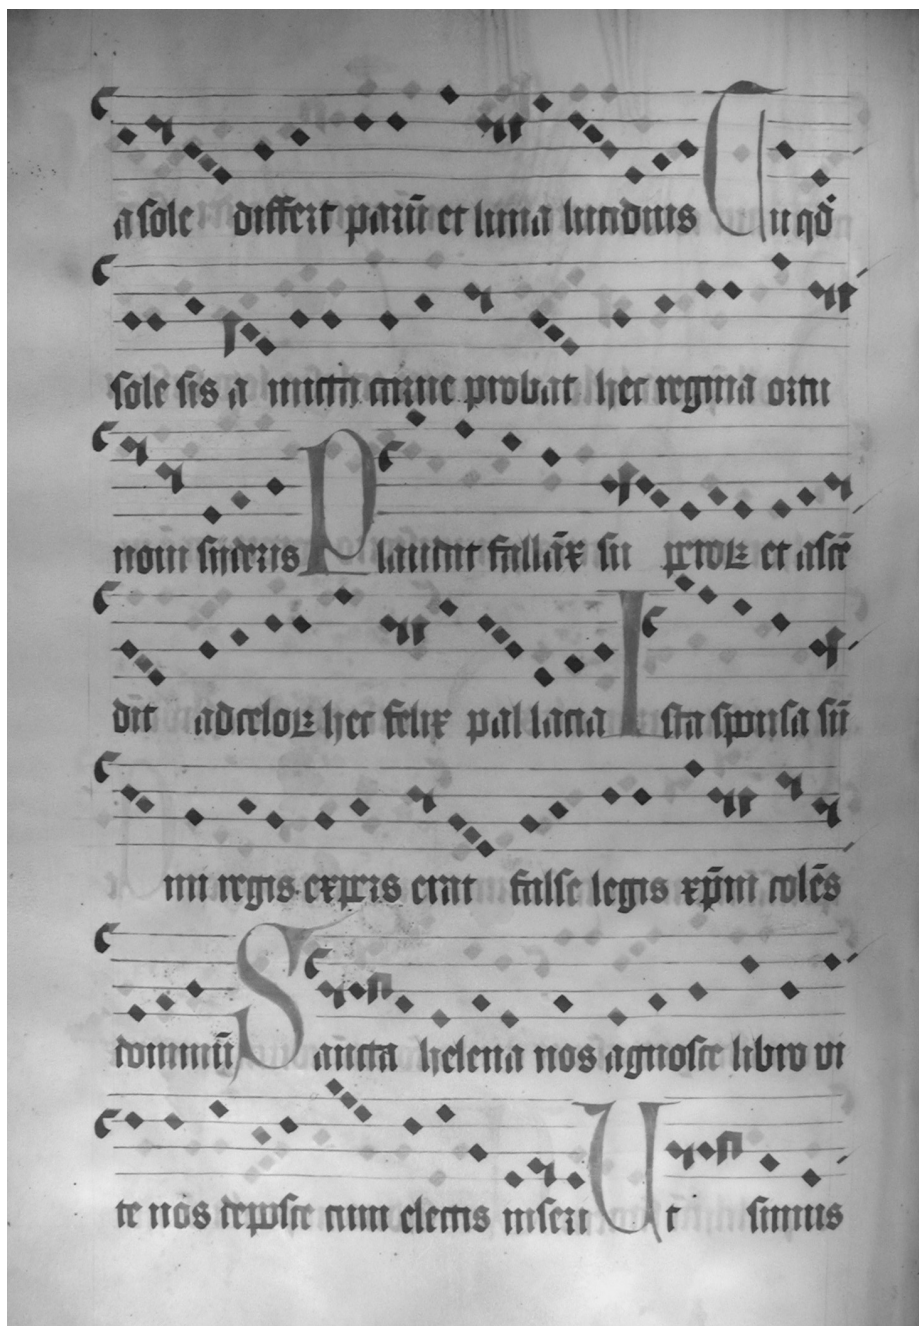 a sole differt parū et luna lucidius Cu qd̄
sole sis a micta carne probat hec regina ortu
noui sideris Plaudat fallāx su ꝑioꝝ et ascē
dit ad celoꝝ hec felix pallacia Ista sponsa sū
mi regis expers erat false legis xp̄m colēs
dominū Sancta helena nos agnosce libro vi
te nos deposce cum electis inseri Ut simus